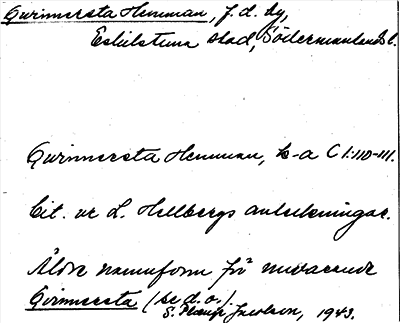 Qvinnersta Hemman, f.d. by,
Eskilstuna stad, Södermanlands l.
Qvinnersta Hemman, k-a C 1:110-111.
Cit. ur L. Hellbergs anteckningar.
Äldre namnform för nuvarande
Kvinnersta (se d.o.).
S. Jacobson, 1943.